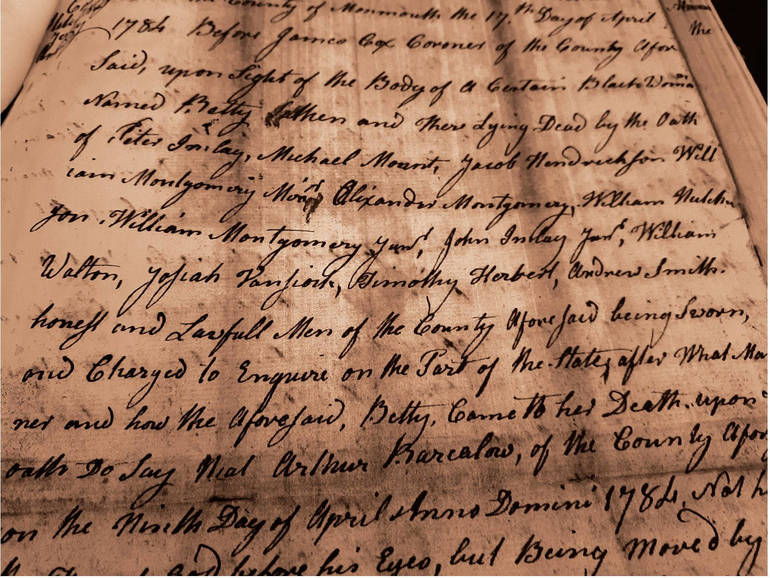 County of Monmouth the 17.th Day of April
1784 Before James Cox Coroner of the County Afor
Said, upon Sight of the Body of a Certain Black Woman
Named Betty then and ther Lying Dead by the Oath
of Peter Imlay, Michael Mount, Jacob Hendrickson Will
iam Montgomery Alixander Montgomery, William Hutchin
son. William Montgomery Junr, John Imlay Junr, William
Walton, Josiah Vansiock, Timothy Herbert, Andrew Smith.
honest and Lawfull Men of the County Aforesaid being Sworn,
and Charged to Enquire on the Part of the State, after What Man
ner and how the Aforesaid, Betty, Came to her Death. upon
oath Do Say that Arthur Barcalow, of the County Afor
on the Ninth Day of April Anno Domini 1784, Not h
God before his Eyes, but Being Moved by
the